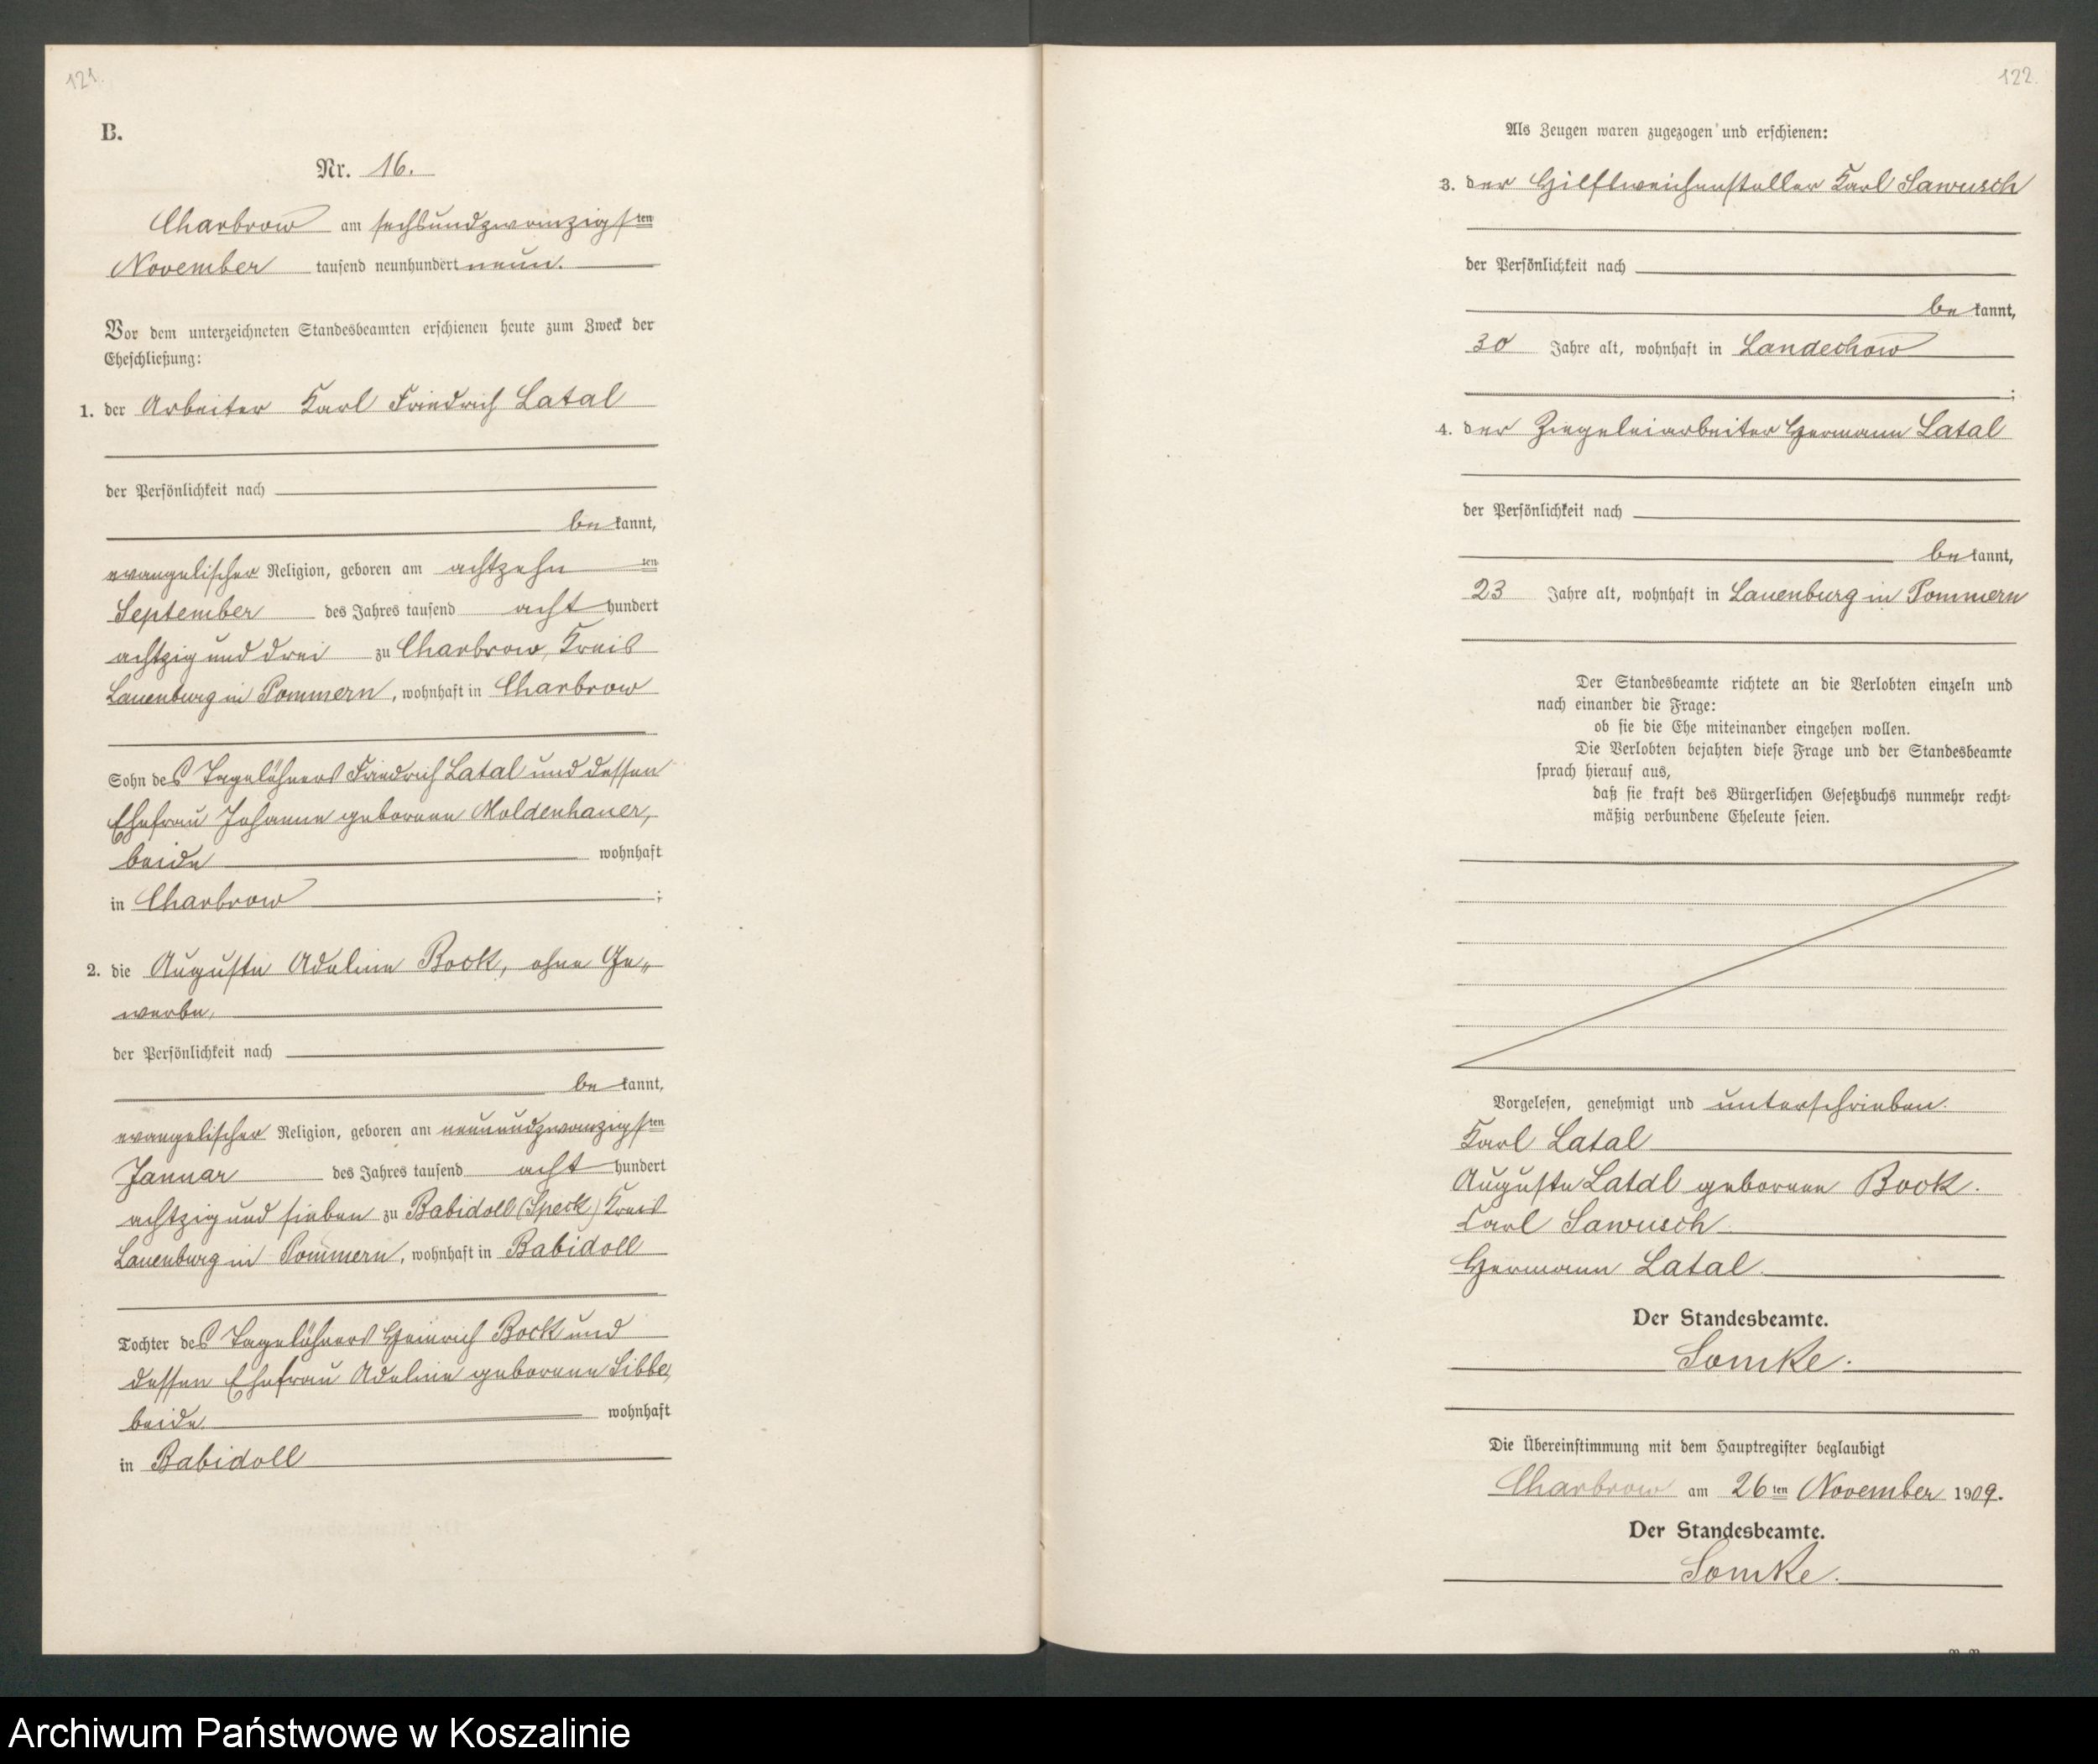 121.
B.
Nr. 16.
Charbrow am sechsundzwanzigsten
November tausend neunhundert neun.
Vor dem unterzeichneten Standesbeamten erschienen heute zum Zweck der
Eheschließung:
1. der Arbeiter Karl Friedrich Latal
der Persönlichkeit nach
be kannt,
evangelischer Religion, geboren am achtzehn ten
September des Jahres tausend acht hundert
achtzig und drei zu Charbrow, Kreis
Lauenburg in Pommern, wohnhaft in Charbrow
Sohn des Tagelöhners Friedrich Latal und dessen
Ehefrau Johanne geborene Moldenhauer,
beide wohnhaft
in Charbrow ;
2. die Auguste Adeline Bock, ohne Ge„
werbe,
der Persönlichkeit nach
be kannt,
evangelischer Religion, geboren am neunundzwanzigsten
Januar des Jahres tausend acht hundert
achtzig und sieben zu Babidoll (Speck) Kreis
Lauenburg in Pommern, wohnhaft in Babidoll
Tochter des Tagelöhners Heinrich Bock und
dessen Ehefrau Adeline geborene Libbe,
beide wohnhaft
in Babidoll
122.
Als Zeugen waren zugezogen und erschienen:
3. der Hilfsweichensteller Karl Sawusch
der Persönlichkeit nach
be kannt,
30 Jahre alt, wohnhaft in Landechow
;
4. der Ziegeleiarbeiter Hermann Latal
der Persönlichkeit nach
be kannt,
23 Jahre alt, wohnhaft in Lauenburg in Pommern
Der Standesbeamte richtete an die Verlobten einzeln und
nach einander die Frage:
ob sie die Ehe miteinander eingehen wollen.
Die Verlobten bejahten diese Frage und der Standesbeamte
sprach hierauf aus,
daß sie kraft des Bürgerlichen Gesetzbuchs nunmehr recht-
mäßig verbundene Eheleute seien.
Vorgelesen, genehmigt und unterschrieben.
Karl Latal
Auguste Latal geborene Bock.
Karl Sawusch
Hermann Latal.
Der Standesbeamte.
Lomke.
Die Übereinstimmung mit dem Hauptregister beglaubigt
Charbrow am 26ten November 1909.
Der Standesbeamte.
Lomke.
Archiwum Państwowe w Koszalinie